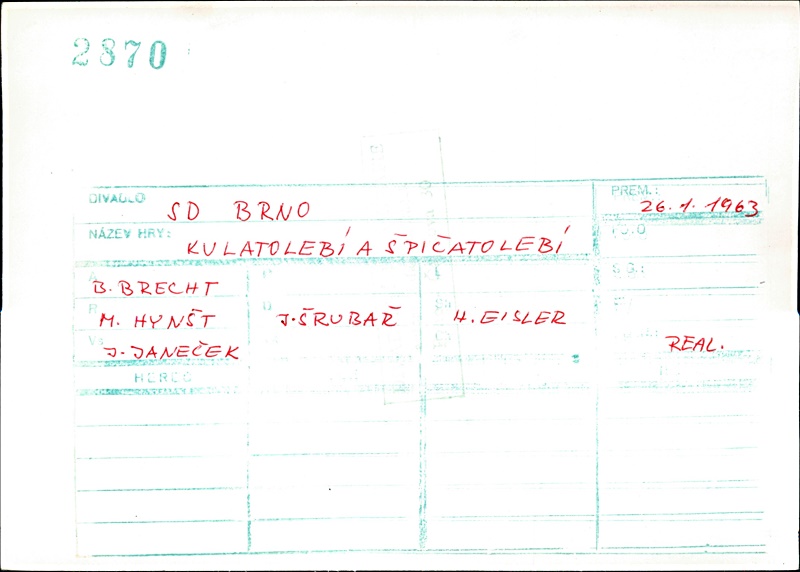 2870
DIVADLO SD BRNO PREM.: 26.1.1963
NÁZEV HRY: KULATOLEBÍ A ŠPIČATOLEBÍ
B. BRECHT
M. HYNŠT J. ŠRUBAŘ H. EISLER
J. JANEČEK REAL.
HEREC